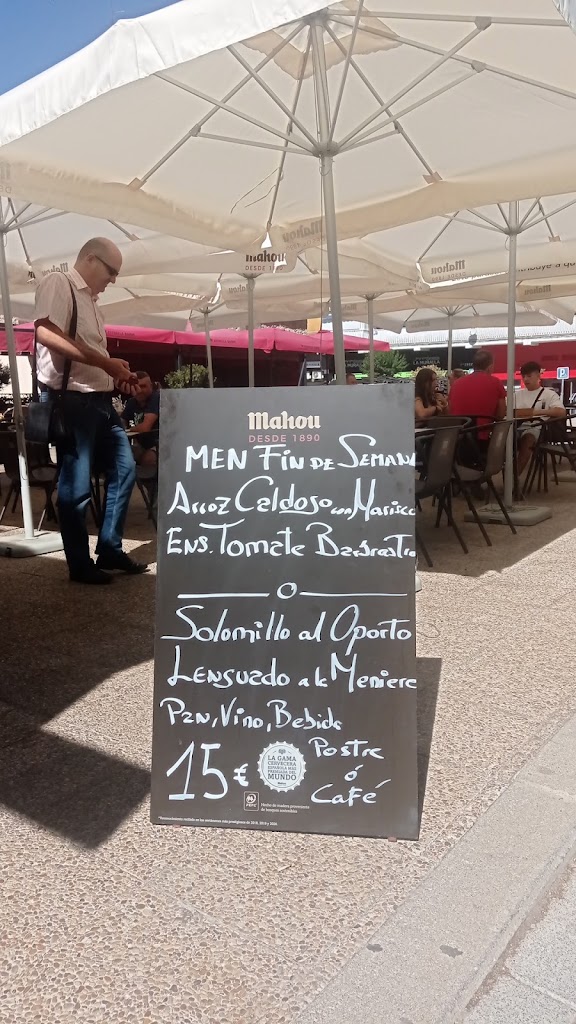 mahou
mahou
mahou
mahou
DESDE 1890
MEN FIN DE SEMANA
Arroz Caldoso con Marisco
ENS. Tomate Barbastro
O
Solomillo al Oporto
LENGUADO a la Meniere
PAN, Vino, Bebida
15€
LA GAMA
CERVECERA
ESPAÑOLA MÁS
PREMIADA DEL
MUNDO
Postre
ó
Café
PEFC